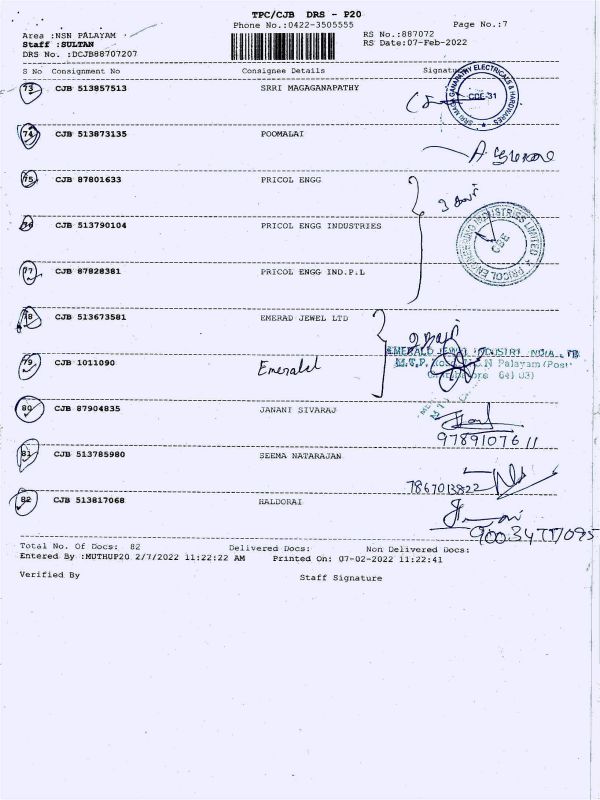 TPC/CJB DRS - P20
Phone No.:0422-3505555
Page No.:7
Area :NSN PALAYAM
RS No.:887072
Staff :SULTAN
RS Date:07-Feb-2022
DRS No. :DCJB88707207
S No Consignment No Consignee Details Signature
73 CJB 513857513 SRRI MAGAGANAPATHY
CDE-31
74 CJB 513873135 POOMALAI
75 CJB 87801633 PRICOL ENGG
76 CJB 513790104 PRICOL ENGG INDUSTRIES
PRICOL ENGINEERING INDUSTRIES LIMITED
CBE
77 CJB 87828381 PRICOL ENGG IND.P.L
78 CJB 513673581 EMERAD JEWEL LTD
79 CJB 1011090 Emerald
80 CJB 87904835 JANANI SIVARAJ
9789107611
81 CJB 513785980 SEEMA NATARAJAN
7867013822
82 CJB 513817068 HALDORAI
Total No. Of Docs: 82 Delivered Docs: Non Delivered Docs:
Entered By :MUTHUP20 2/7/2022 11:22:22 AM Printed On: 07-02-2022 11:22:41
Verified By Staff Signature